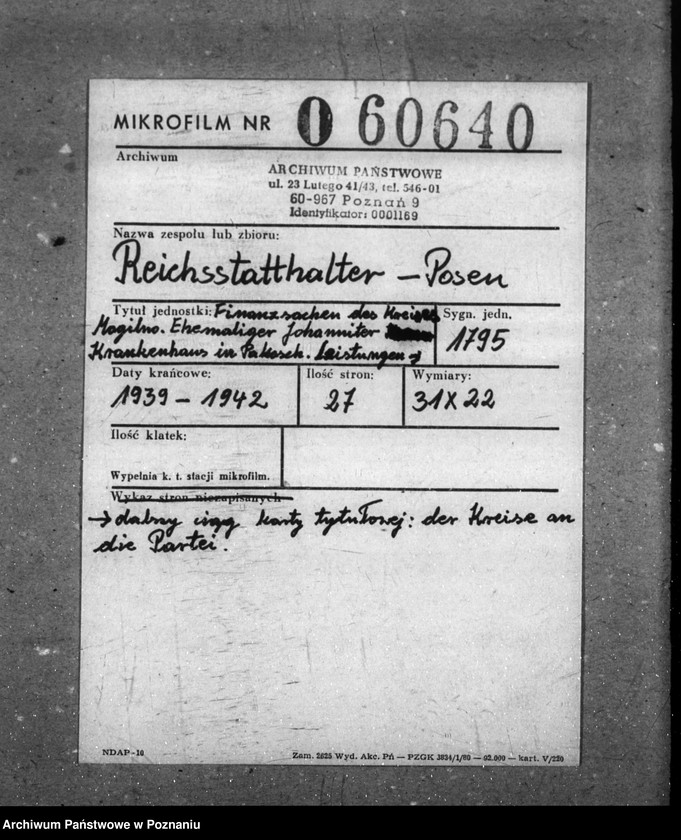 MIKROFILM NR 0 60640
Archiwum
ARCHIWUM PAŃSTWOWE
ul. 23 Lutego 41/43, tel. 546-01
60-967 Poznań 9
Identyfikator: 0001169
Nazwa zespołu lub zbioru:
Reichsstatthalter – Posen
Tytuł jednostki: Finanzsachen des Kreises
Mogilno. Ehemaliger Johanniter
Krankenhaus in Pakosch. Leistungen →
Sygn. jedn.
1795
Daty krańcowe:
1939 – 1942
Ilość stron:
27
Wymiary:
31X22
Ilość klatek:
Wypełnia k. t. stacji mikrofilm.
Wykaz stron niezapisanych
→ dalszy ciąg karty tytułowej: der Kreise an
die Partei.
NDAP-10
Zam. 2625 Wyd. Akc. Pń — PZGK 3834/1/80 — 02.000 — kart. V/220
Archiwum Państwowe w Poznaniu